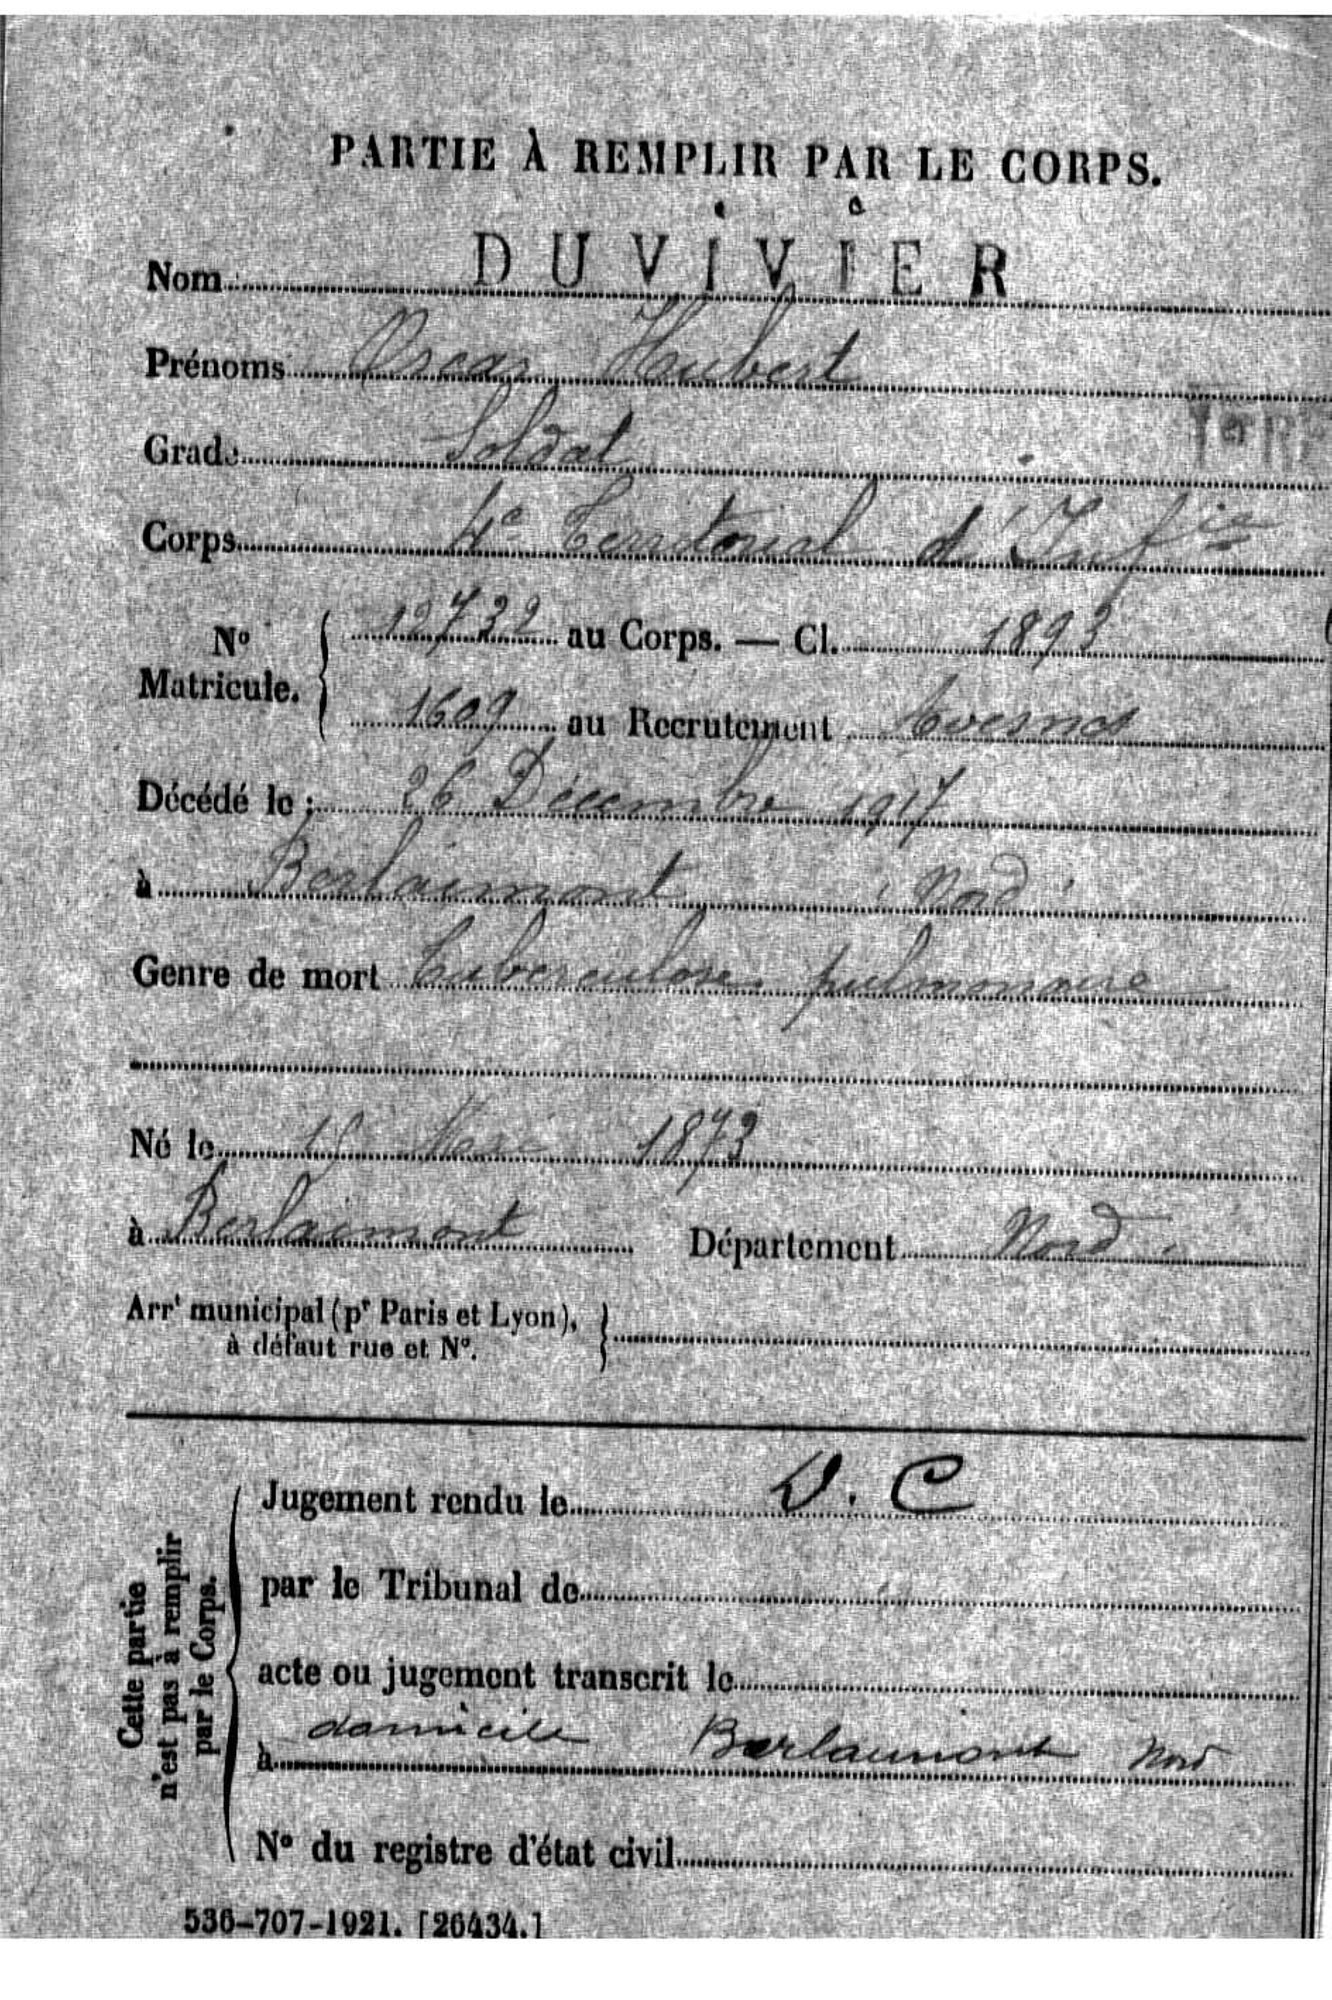 PARTIE À REMPLIR PAR LE CORPS.
Nom DUVIVIER
Prénoms Oscar Hubert
Grade Soldat
1er
Corps 4e Territorial d'Infie
No Matricule. 12732 au Corps. — Cl. 1893
1609 au Recrutement Avesnes
Décédé le : 26 Décembre 1917
à Berlaimont (Nord)
Genre de mort Tuberculose pulmonaire
Né le 1873
à Berlaimont Département Nord
Arrt municipal (pr Paris et Lyon),
à défaut rue et No.
Cette partie
n'est pas à remplir
par le Corps.
Jugement rendu le D. C
par le Tribunal de
acte ou jugement transcrit le
à domicile Berlaimont Nord
No du registre d'état civil
536-707-1921. [26434.]